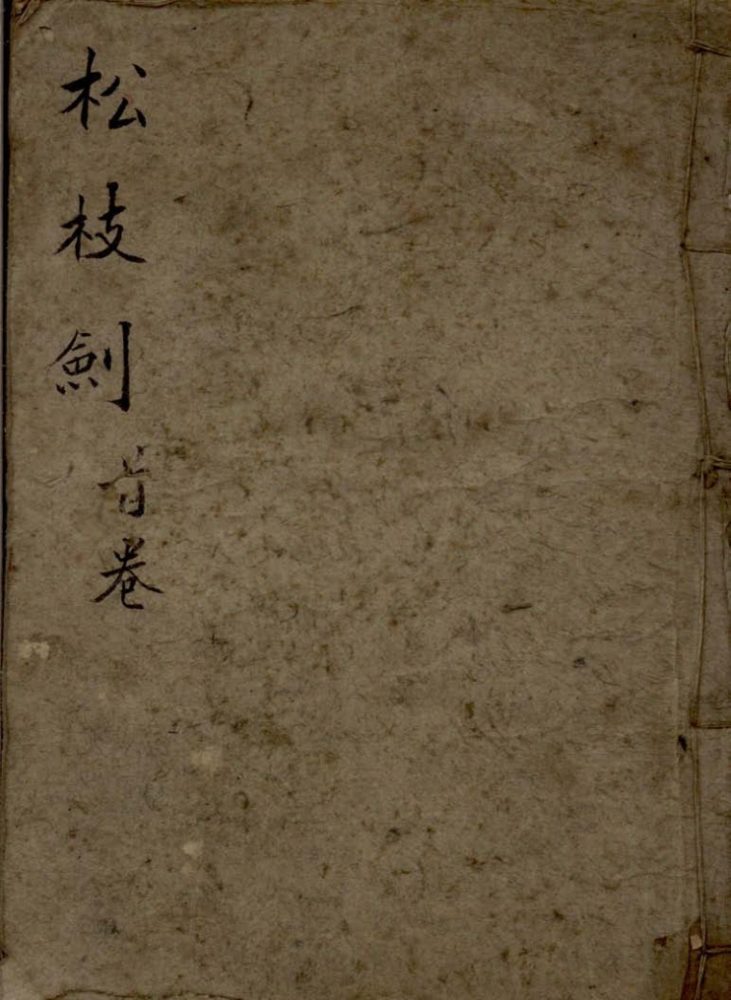 松枝劍首卷